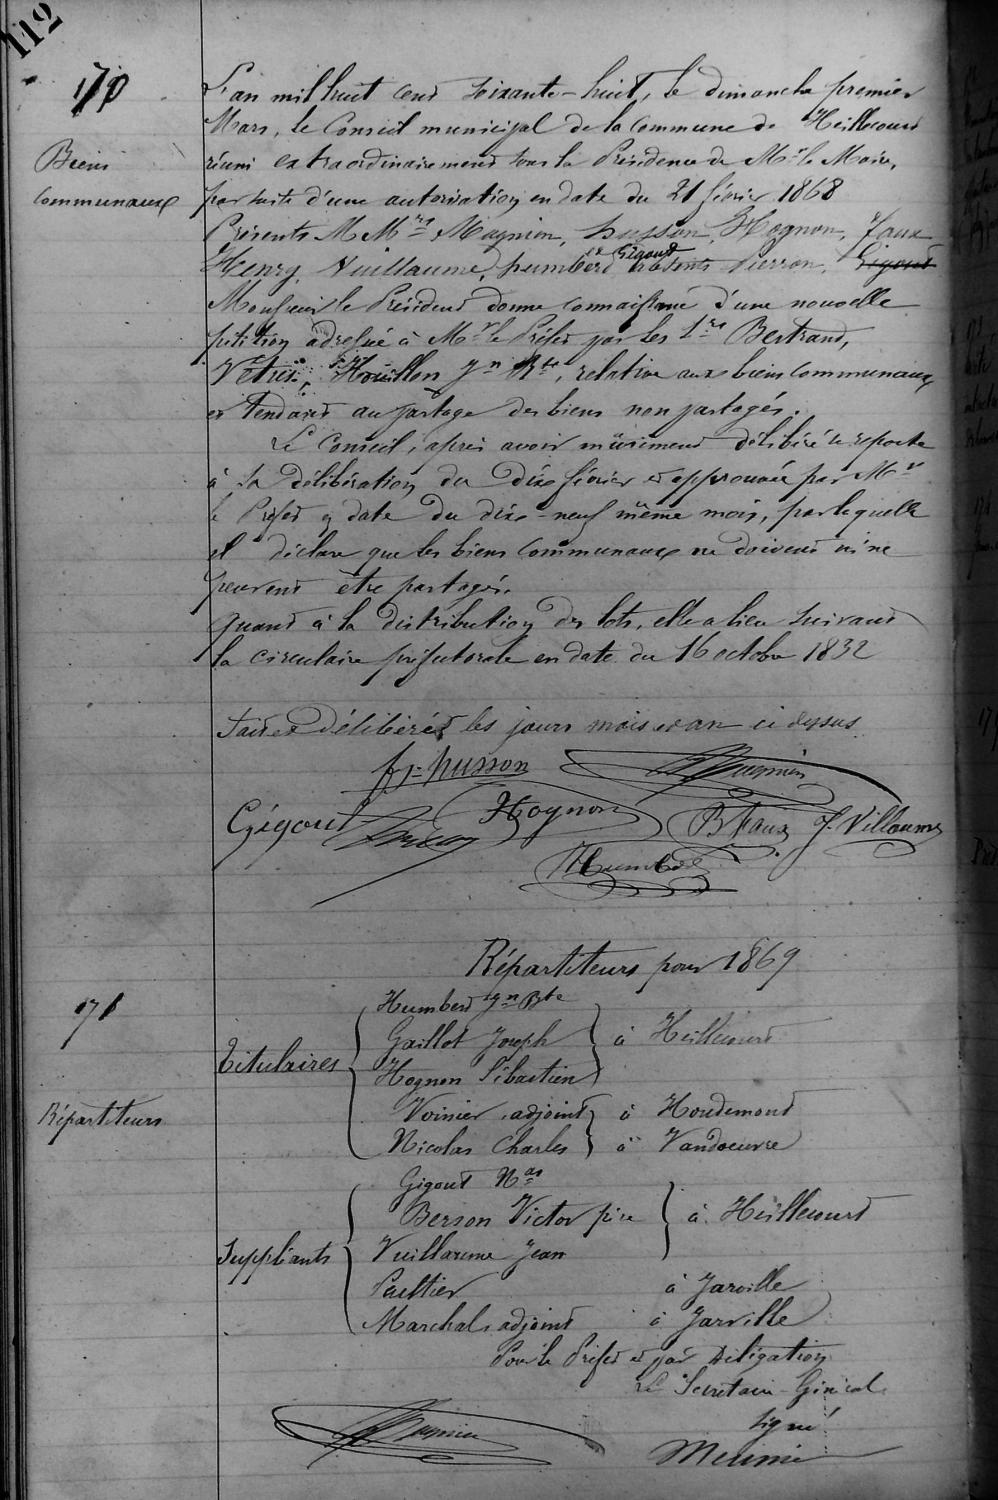 112
170
Biens
communaux
L'an mil huit cent soixante-huit, le dimanche premier
Mars, le Conseil municipal de la commune de Heillecourt
réuni extraordinairement sous la Présidence de Mr le Maire,
par suite d'une autorisation en date du 21 février 1868
Présents M Mrs Magnien, husson, Hognon, Faux
Henry, Vuillaume, humbert et Gigout absents Pierron, Gigout
Monsieur le Président donne connaissance d'une nouvelle
pétition adressée à Mr le Préfet par les Srs Bertrand,
Houillon Jn Bte, relative aux biens communaux
et tendant au partage des biens non partagés.
Le Conseil, après avoir mûrement délibéré se reporte
à sa délibération du dix février et approuvée par Mr
le Préfet en date du dix-neuf même mois, par laquelle
il déclare que les biens communaux ne doivent ni ne
peuvent être partagés.
Quant à la distribution des lots, elle a lieu suivant
la circulaire préfectorale en date du 16 octobre 1832
Fait et délibéré les jours mois et an ci dessus
husson Magnien
Gigout Hognon B Faux J. Villaume
Humbert
Répartiteurs pour 1869
171
Répartiteurs
Titulaires
Humbert Jn Bte
Gaillot Joseph à Heillecourt
Hognon Sébastien
Voinier, adjoint à Houdemont
Nicolas Charles à Vandoeuvre
Suppléants
Gigout Nas
Berson Victor père à Heillecourt
Vuillaume Jean
Paultier à Jarville
Marchal, adjoint à Jarville
Pour le Préfet et par Délégation
Le Secrétaire Général
signé
Magnien